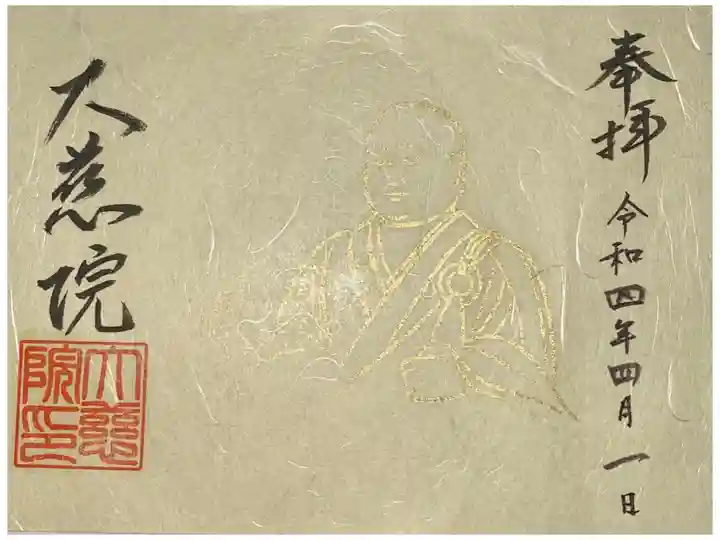 奉拝 令和四年四月一日
大慈院
大慈
院印